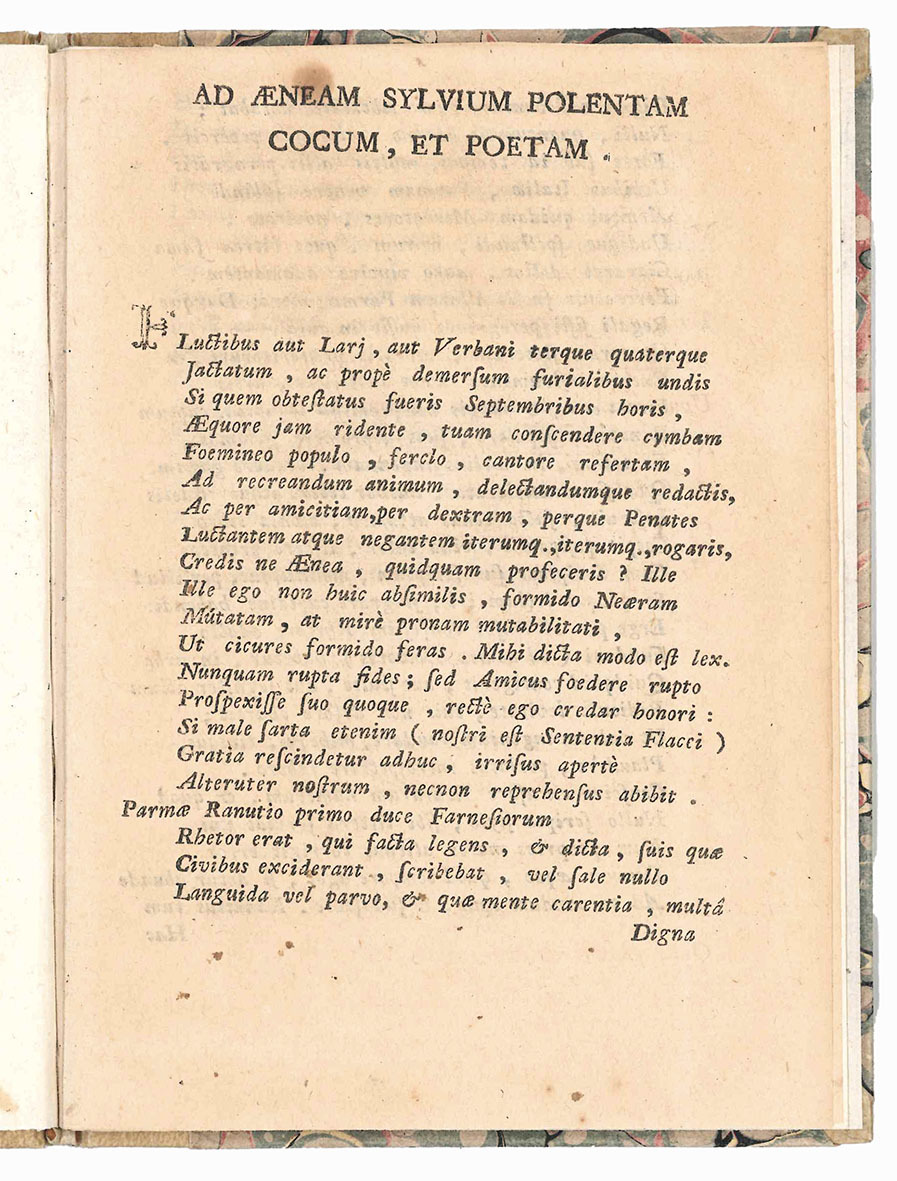 AD ÆNEAM SYLVIUM POLENTAM
COCUM, ET POETAM.
FLuctibus aut Larj, aut Verbani terque quaterque
Jactatum, ac propè demerſum furialibus undis
Si quem obteſtatus fueris Septembribus horis,
Æquore jam ridente, tuam conſcendere cymbam
Foemineo populo, ferclo, cantore refertam,
Ad recreandum animum, delectandumque redactis,
Ac per amicitiam, per dextram, perque Penates
Luctantem atque negantem iterumq., iterumq., rogaris,
Credis ne Ænea, quidquam profeceris? Ille
Ille ego non huic abſimilis, formido Neæram
Mútatam, at mirè pronam mutabilitati,
Ut cicures formido feras. Mihi dicta modo eſt lex.
Nunquam rupta fides; ſed Amicus foedere rupto
Proſpexiſſe ſuo quoque, rectè ego credar honori:
Si male ſarta etenim (noſtri eſt Sententia Flacci)
Gratia reſcindetur adhuc, irriſus apertè
Alteruter noſtrum, necnon reprehenſus abibit.
Parmæ Ranutio primo duce Farneſiorum
Rhetor erat, qui facta legens, & dicta, ſuis quæ
Civibus exciderant, ſcribebat, vel ſale nullo
Languida vel parvo, & quæ mente carentia, multâ
Digna